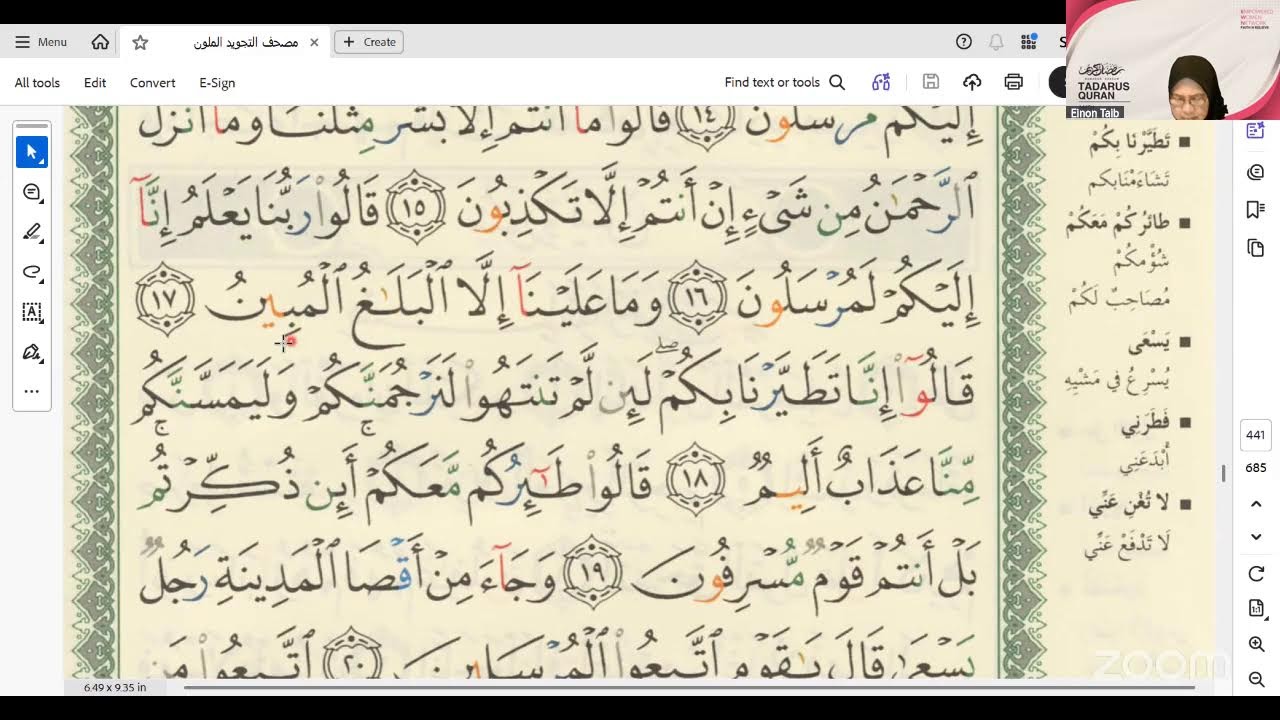 Menu
مصحف التجويد الملون
Create
All tools
Edit
Convert
E-Sign
Find text or tools
EMPOWERED
WOMEN
NETWORK
TADARUS
QURAN
Elnon Talb
إِلَيْكُم مُّرْسَلُونَ ١٤ قَالُوا۟ مَآ أَنتُمْ إِلَّا بَشَرٌ مِّثْلُنَا وَمَآ أَنزَلَ
ٱلرَّحْمَـٰنُ مِن شَىْءٍ إِنْ أَنتُمْ إِلَّا تَكْذِبُونَ ١٥ قَالُوا۟ رَبُّنَا يَعْلَمُ إِنَّآ
إِلَيْكُمْ لَمُرْسَلُونَ ١٦ وَمَا عَلَيْنَآ إِلَّا ٱلْبَلَـٰغُ ٱلْمُبِينُ ١٧
قَالُوٓا۟ إِنَّا تَطَيَّرْنَا بِكُمْ ۖ لَئِن لَّمْ تَنتَهُوا۟ لَنَرْجُمَنَّكُمْ وَلَيَمَسَّنَّكُم
مِّنَّا عَذَابٌ أَلِيمٌ ١٨ قَالُوا۟ طَـٰٓئِرُكُم مَّعَكُمْ ۚ أَئِن ذُكِّرْتُم ۚ
بَلْ أَنتُمْ قَوْمٌ مُّسْرِفُونَ ١٩ وَجَآءَ مِنْ أَقْصَا ٱلْمَدِينَةِ رَجُلٌ
يَسْعَىٰ قَالَ يَـٰقَوْمِ ٱتَّبِعُوا۟ ٱلْمُرْسَلِينَ ٢٠ ٱتَّبِعُوا۟ مَن
تَطَيَّرْنَا بِكُمْ
تَشَاءَمْنَا بكم
طائرُكُمْ مَعَكُمْ
شُؤْمكُمْ
مُصَاحِبٌ لَكُمْ
يَسْعَى
يُسْرِعُ فِي مَشْيِهِ
فَطَرَنِي
أَبْدَعَنِي
لا تُغْنِ عَنِّي
لَا تَدْفَعْ عَنِّي
441
685
6.49 x 9.35 in
zoom